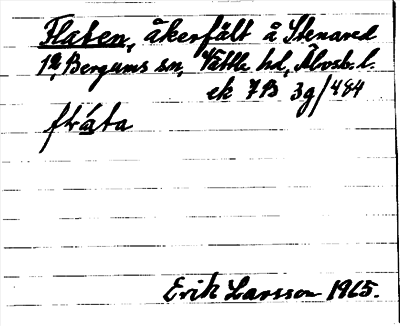 Flaten, åkerfält å Stenared
1², Bergums sn, Vättle hd, Älvsb. l.
ek 7B 3g/484
Erik Larsson 1965.